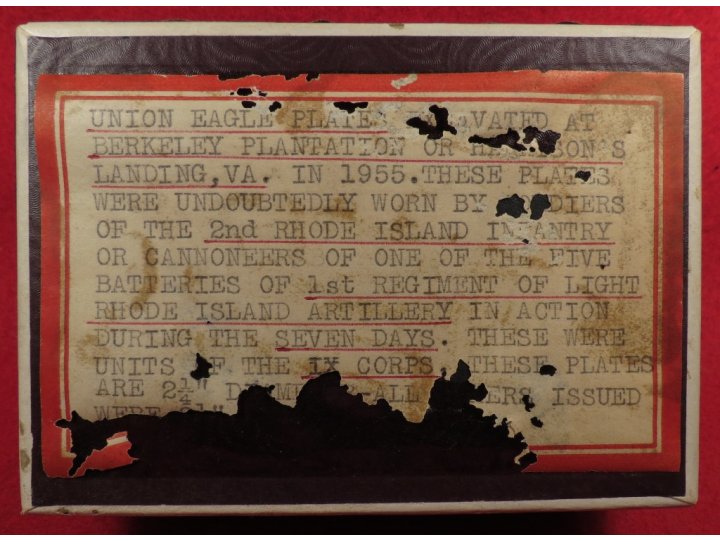 UNION EAGLE PLATES EXCAVATED AT
BERKELEY PLANTATION OR HARRISON'S
LANDING,VA. IN 1955.THESE PLATES
WERE UNDOUBTEDLY WORN BY SOLDIERS
OF THE 2nd RHODE ISLAND INFANTRY
OR CANNONEERS OF ONE OF THE FIVE
BATTERIES OF 1st REGIMENT OF LIGHT
RHODE ISLAND ARTILLERY IN ACTION
DURING THE SEVEN DAYS. THESE WERE
UNITS OF THE IX CORPS, THESE PLATES
ARE 2¼" ALL ISSUED
WERE